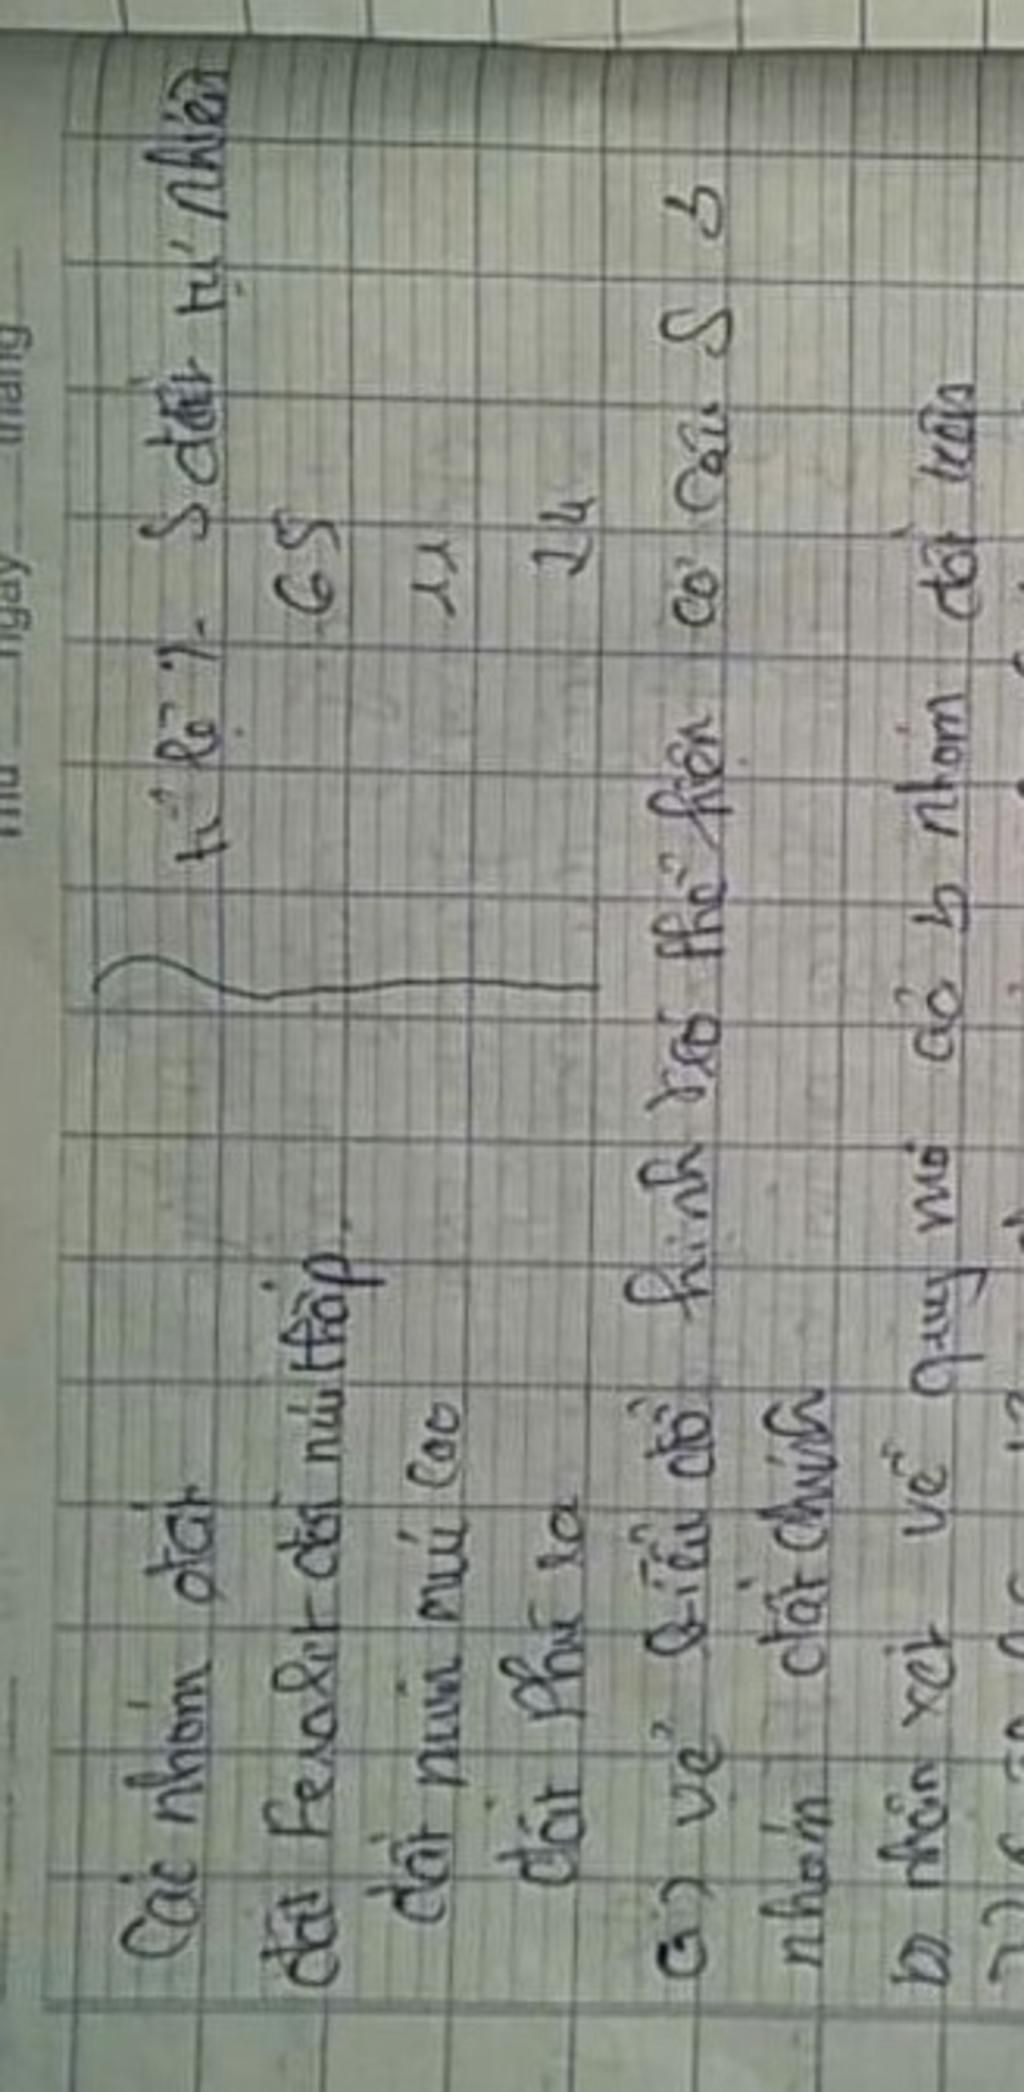 Thứ ngày tháng
Các nhóm đất tỉ lệ % S đất tự nhiên
đất Feralit đồi núi thấp. 65
đất mùn núi cao 11
đất phù sa 24
a) vẽ biểu đồ hình tròn thể hiện cơ cấu S 3
nhóm đất chính
b) nhận xét về quy mô các nhóm đất trên